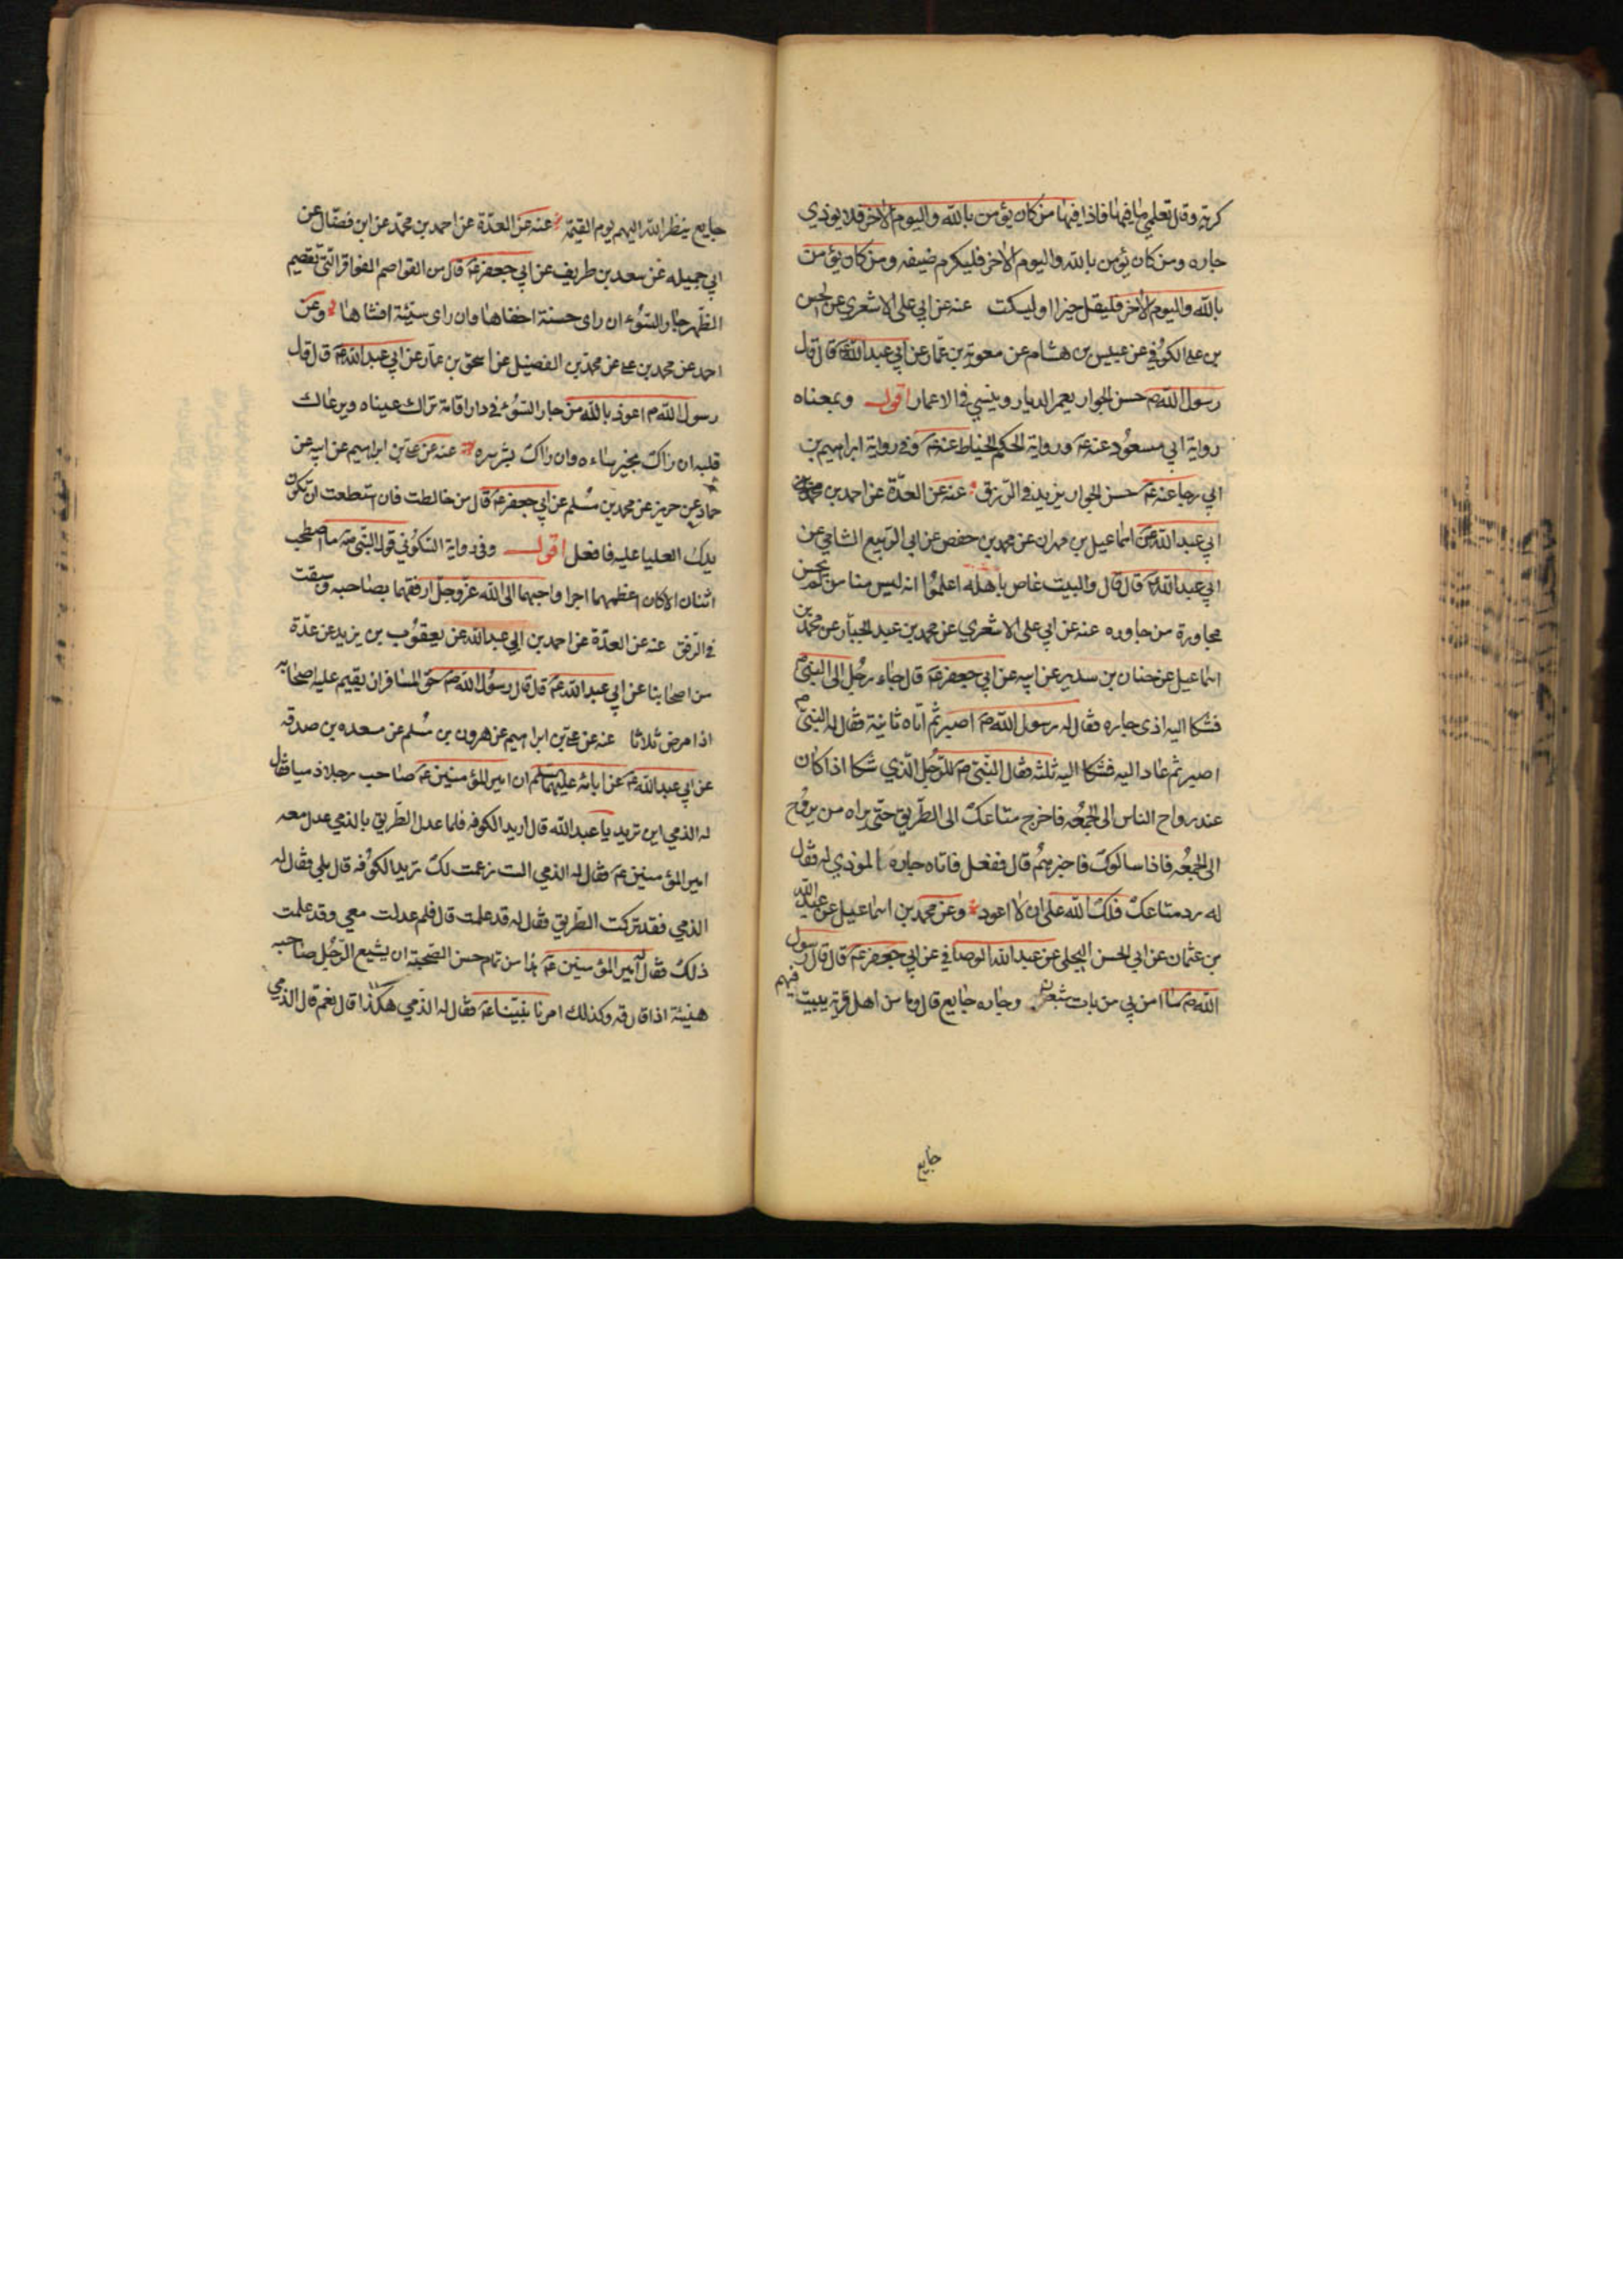 كربة وقال تعلمي ما فيها فاذا فيها من كان يؤمن بالله واليوم الاخر فلا يوذي
جاره ومن كان يؤمن بالله واليوم الاخر فليكرم ضيفه ومن كان يؤمن
بالله واليوم الاخر فليقل خيرا او ليسكت عنه عن ابي علي الاشعري عن الحسن
بن علي الكوفي عن عبيس بن هشام عن معوية بن عمار عن ابي عبد الله عم قال قال
رسول الله ص حسن الجوار يعمر الديار وينسي في الاعمار اقول وبمعناه
رواية ابي مسعود عنه عم ورواية الحكم الخياط عنه عم وفي رواية ابراهيم بن
ابي رجا عنه عم حسن الجوار يزيد في الرزق عنه عن العدة عن احمد بن
ابي عبد الله عن اسماعيل بن مهران عن محمد بن حفص عن ابي الربيع الشامي عن
ابي عبد الله عم قال قال والبيت غاص باهله اعلموا انه ليس منا من لم يحسن
مجاورة من جاوره عنه عن ابي علي الاشعري عن محمد بن عبد الجبار عن محمد بن
اسماعيل عن حنان بن سدير عن ابيه عن ابي جعفر عم قال جاء رجل الى النبي ص
فشكا اليه اذى جاره فقال له رسول الله ص اصبر ثم اتاه ثانية فقال له النبي ص
اصبر ثم عاد اليه فشكا اليه ثلثه فقال النبي ص للرجل الذي شكا اذا كان
عند رواح الناس الى الجمعه فاخرج متاعك الى الطريق حتى يراه من يروح
الى الجمعه فاذا سالوك فاخبرهم قال ففعل فاتاه جاره الموذي له فقال
له رد متاعك فلك الله علي ان لا اعود وعن محمد بن اسماعيل عن عبد الله
بن عثمان عن ابي الحسن البجلي عن عبد الله الوصافي عن ابي جعفر عم قال قال رسول
الله ص ما امن بي من بات شبعان وجاره جايع قال وما من اهل قرية يبيت فيهم
جايع
جايع ينظر الله اليهم يوم القيمة عنه عن العدة عن احمد بن محمد عن ابن فضال عن
ابي جميله عن سعد بن طريف عن ابي جعفر عم قال من القواصم الفواقر التي تقصم
الظهر جار السوء ان راى حسنة اخفاها وان راى سيئة افشاها وعن
احمد عن محمد بن علي عن محمد بن الفضيل عن اسحق بن عمار عن ابي عبد الله عم قال قال
رسول الله ص اعوذ بالله من جار السوء في دار اقامة تراك عيناه ويرعاك
قلبه ان راك بخير ساءه وان راك بشر سره عنه عن علي بن ابراهيم عن ابيه عن
حماد عن حريز عن محمد بن مسلم عن ابي جعفر عم قال من خالطت فان استطعت ان تكون
يدك العليا عليه فافعل اقول وفي رواية السكوني قول النبي ص ما اصطحب
اثنان الا كان اعظمهما اجرا واحبهما الى الله عز وجل ارفقهما بصاحبه وسبقت
في الرفق عنه عن العدة عن احمد بن ابي عبد الله عن يعقوب بن يزيد عن عدة
من اصحابنا عن ابي عبد الله عم قال قال رسول الله ص حق المسافر ان يقيم عليه اصحابه
اذا مرض ثلاثا عنه عن علي بن ابراهيم عن هرون بن مسلم عن مسعده بن صدقه
عن ابي عبد الله عم عن ابائه عليهم السلام ان امير المؤمنين عم صاحب رجلا ذميا فقال
له الذمي اين تريد يا عبد الله قال اريد الكوفه فلما عدل الطريق بالذمي عدل معه
امير المؤمنين عم فقال له الذمي الست زعمت لك تريد الكوفه قال بلى فقال له
الذمي فقد تركت الطريق فقال له قد علمت قال فلم عدلت معي وقد علمت
ذلك فقال له امير المؤمنين عم هذا من تمام حسن الصحبة ان يشيع الرجل صاحبه
هنيئة اذا فارقه وكذلك امرنا نبينا عم فقال له الذمي هكذا قال نعم قال الذمي